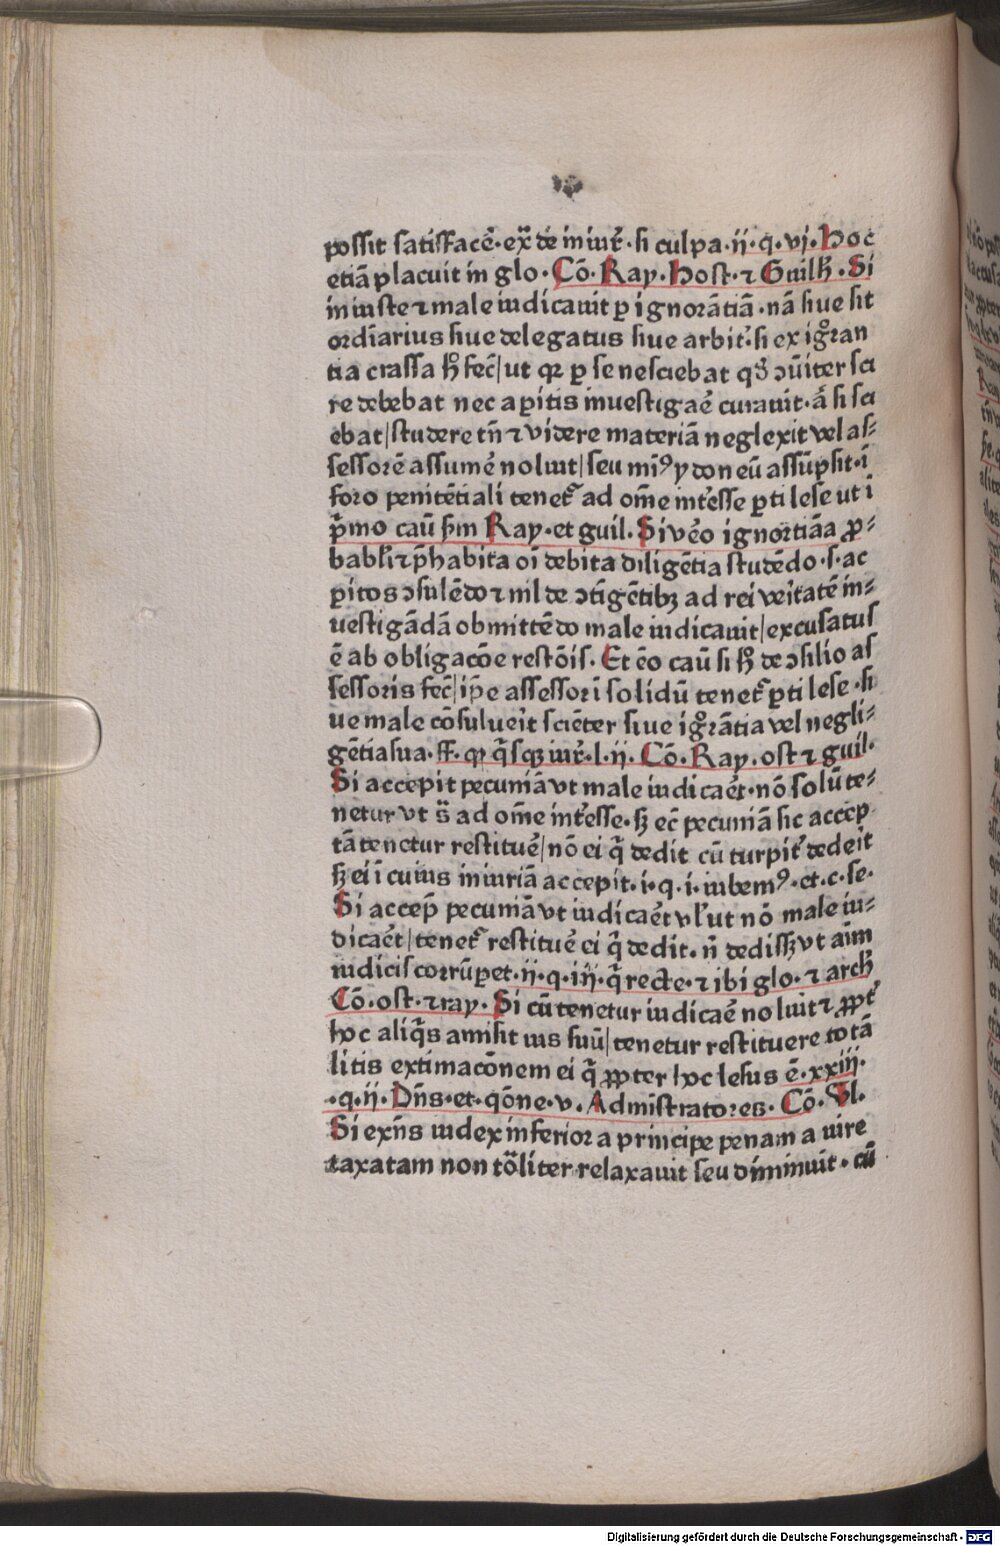 possit satisfacē·ex̄ de iniur̄·si culpa·ii·q·vj·Hoc
etiā placuit in glo·Cō·Ray·Host·⁊ Guilħ·Si
iniuste ⁊ male iudicauit ꝑ ignorātiā·nā siue sit
ordīarius siue delegatus siue arbit̄·si ex igͦran
tia crassa ħ fec̄|ut qꝛ ꝑ se nesciebat qđ ↄūiter sci
re debebat nec a ꝑitis inuestigaē curauit·aͥ si sci
ebat|studere tn̄ ⁊ videre materiā neglexit vel as⸗
sessorē assumē noluit|seu miꝰ ydoneū assūpsit·ī
foro penitētiali tenet̄ ad om̄e int̄esse ꝑti lese ut ī
pͥmo caū sm̄ Ray·et guil·Si v̄o ignorātiāa ꝓ⸗
babli ⁊ p̄habita oī debita diligētia studēdo·s·ac
ꝑitos ↄsulēdo ⁊ nil de ↄtīgētibꝫ ad rei veītatē in⸗
uestigādā obmittēdo male iudicauit|excusatus
ē ab obligacōe restōis·Et ēo caū si ħ de ↄsilio as
sessoris fec̄|ip̄e assessor ī solidū tenet̄ ꝑti lese·si
ue male cōsuluēit sciēter siue igͦrātia vel negli⸗
gētia sua·ff·qͩ qͥsqꝫ iur̄·l·ii·Cō·Ray·ost ⁊ guil·
Si accepit pecuniā vt male iudicaēt·nō solū te⸗
netur vt s̄ ad om̄e int̄esse·sꝫ ec̄ pecuniā sic accep
tā tenetur restituē|nō ei qͥ dedit cū turpit̄ dedeit
sꝫ ei ī cuius iniuriā accepit·i·q·i·iubemꝰ·et·c·se·
Si accep̄ pecuniā vt iudicaēt vl̓ ut nō male iu⸗
dicaēt|tenet̄ restituē ei qͥ dedit·n̄ dedissꝫ vt aīm
iudicis corrūꝑet·ii·q·iij·qͥ recte·⁊ ibi glo·⁊ arcħ
Cō·ost·⁊ ray·Si cū tenetur iudicaē noluit ⁊ ꝓpt̄
hoc aliqͥs amisit ius suū|tenetur restituere totā
litis extimacōnem ei qͥ ꝓpter hoc lesus ē·xxiij·
·q·ii·Dn̄s·et·qōne·v·Admīstratores·Cō·Vl·
Si exn̄s iudex inferior a principe penam a uire
taxatam non tōliter relaxauit seu diminuit·cū
Digitalisierung gefördert durch die Deutsche Forschungsgemeinschaft - DFG